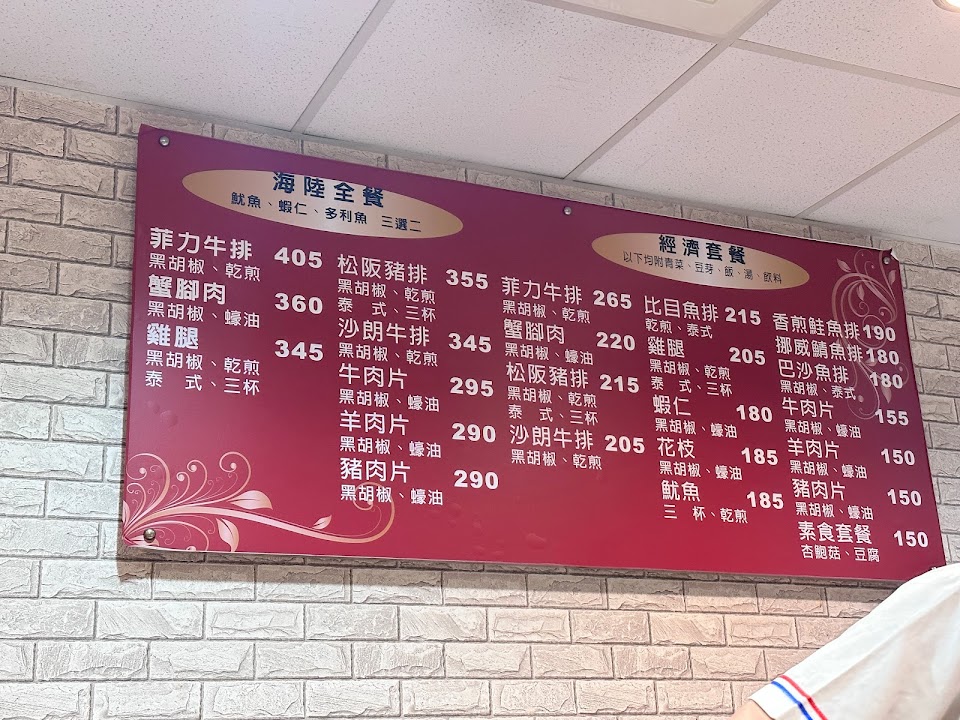 海陸全餐
魷魚、蝦仁、多利魚 三選二
菲力牛排 405
黑胡椒、乾煎
蟹腳肉 360
黑胡椒、蠔油
雞腿 345
黑胡椒、乾煎
泰 式、三杯
松阪豬排 355
黑胡椒、乾煎
泰 式、三杯
沙朗牛排 345
黑胡椒、乾煎
牛肉片 295
黑胡椒、蠔油
羊肉片 290
黑胡椒、蠔油
豬肉片 290
黑胡椒、蠔油
經濟套餐
以下均附青菜、豆芽、飯、湯、飲料
菲力牛排 265
黑胡椒、乾煎
蟹腳肉 220
黑胡椒、蠔油
松阪豬排 215
黑胡椒、乾煎
泰 式、三杯
沙朗牛排 205
黑胡椒、乾煎
比目魚排 215
乾煎、泰式
雞腿 205
黑胡椒、乾煎
泰 式、三杯
蝦仁 180
黑胡椒、蠔油
花枝 185
黑胡椒、蠔油
魷魚 185
三 杯、乾煎
香煎鮭魚排 190
挪威鯖魚排 180
巴沙魚排 180
黑胡椒、泰式
牛肉片 155
黑胡椒、蠔油
羊肉片 150
黑胡椒、蠔油
豬肉片 150
黑胡椒、蠔油
素食套餐 150
杏鮑菇、豆腐